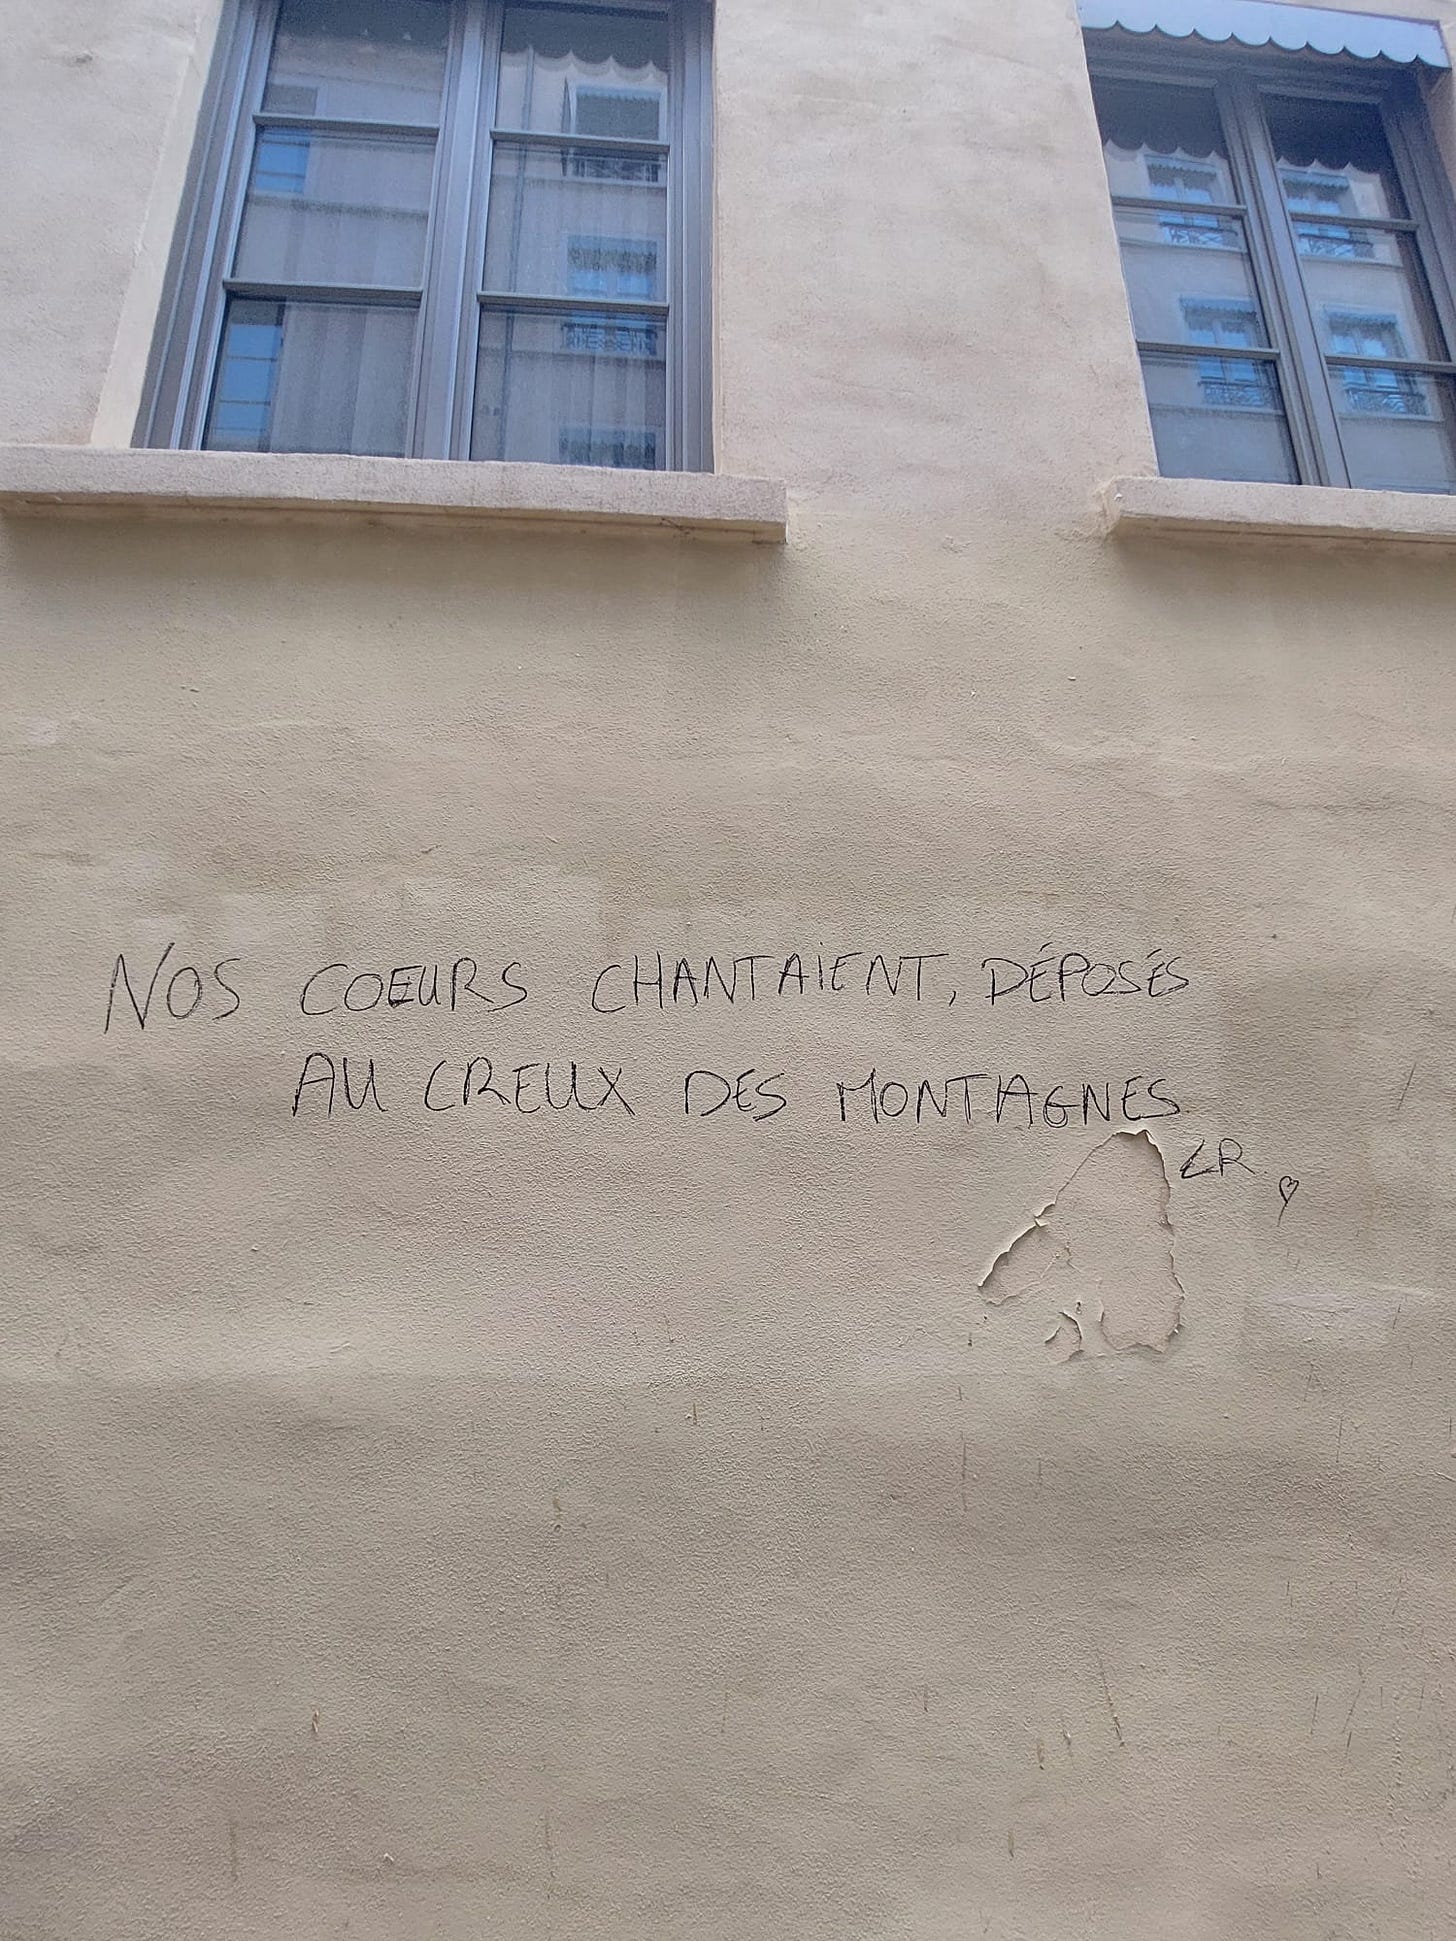 NOS COEURS CHANTAIENT, DÉPOSÉS
AU CREUX DES MONTAGNES
LR.